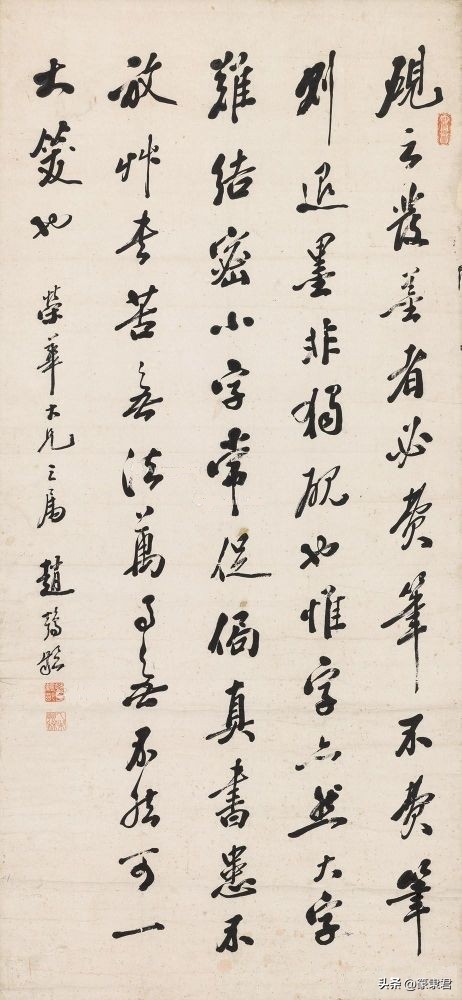 硯之發墨者必費筆不費筆
則退墨非獨硯也惟字亦然大字
難結密小字常促侷真書患不
放艸書苦無法萬事無不然可一
大笑也 榮華大兄之屬 趙鶴齡
头条 @篆隶君